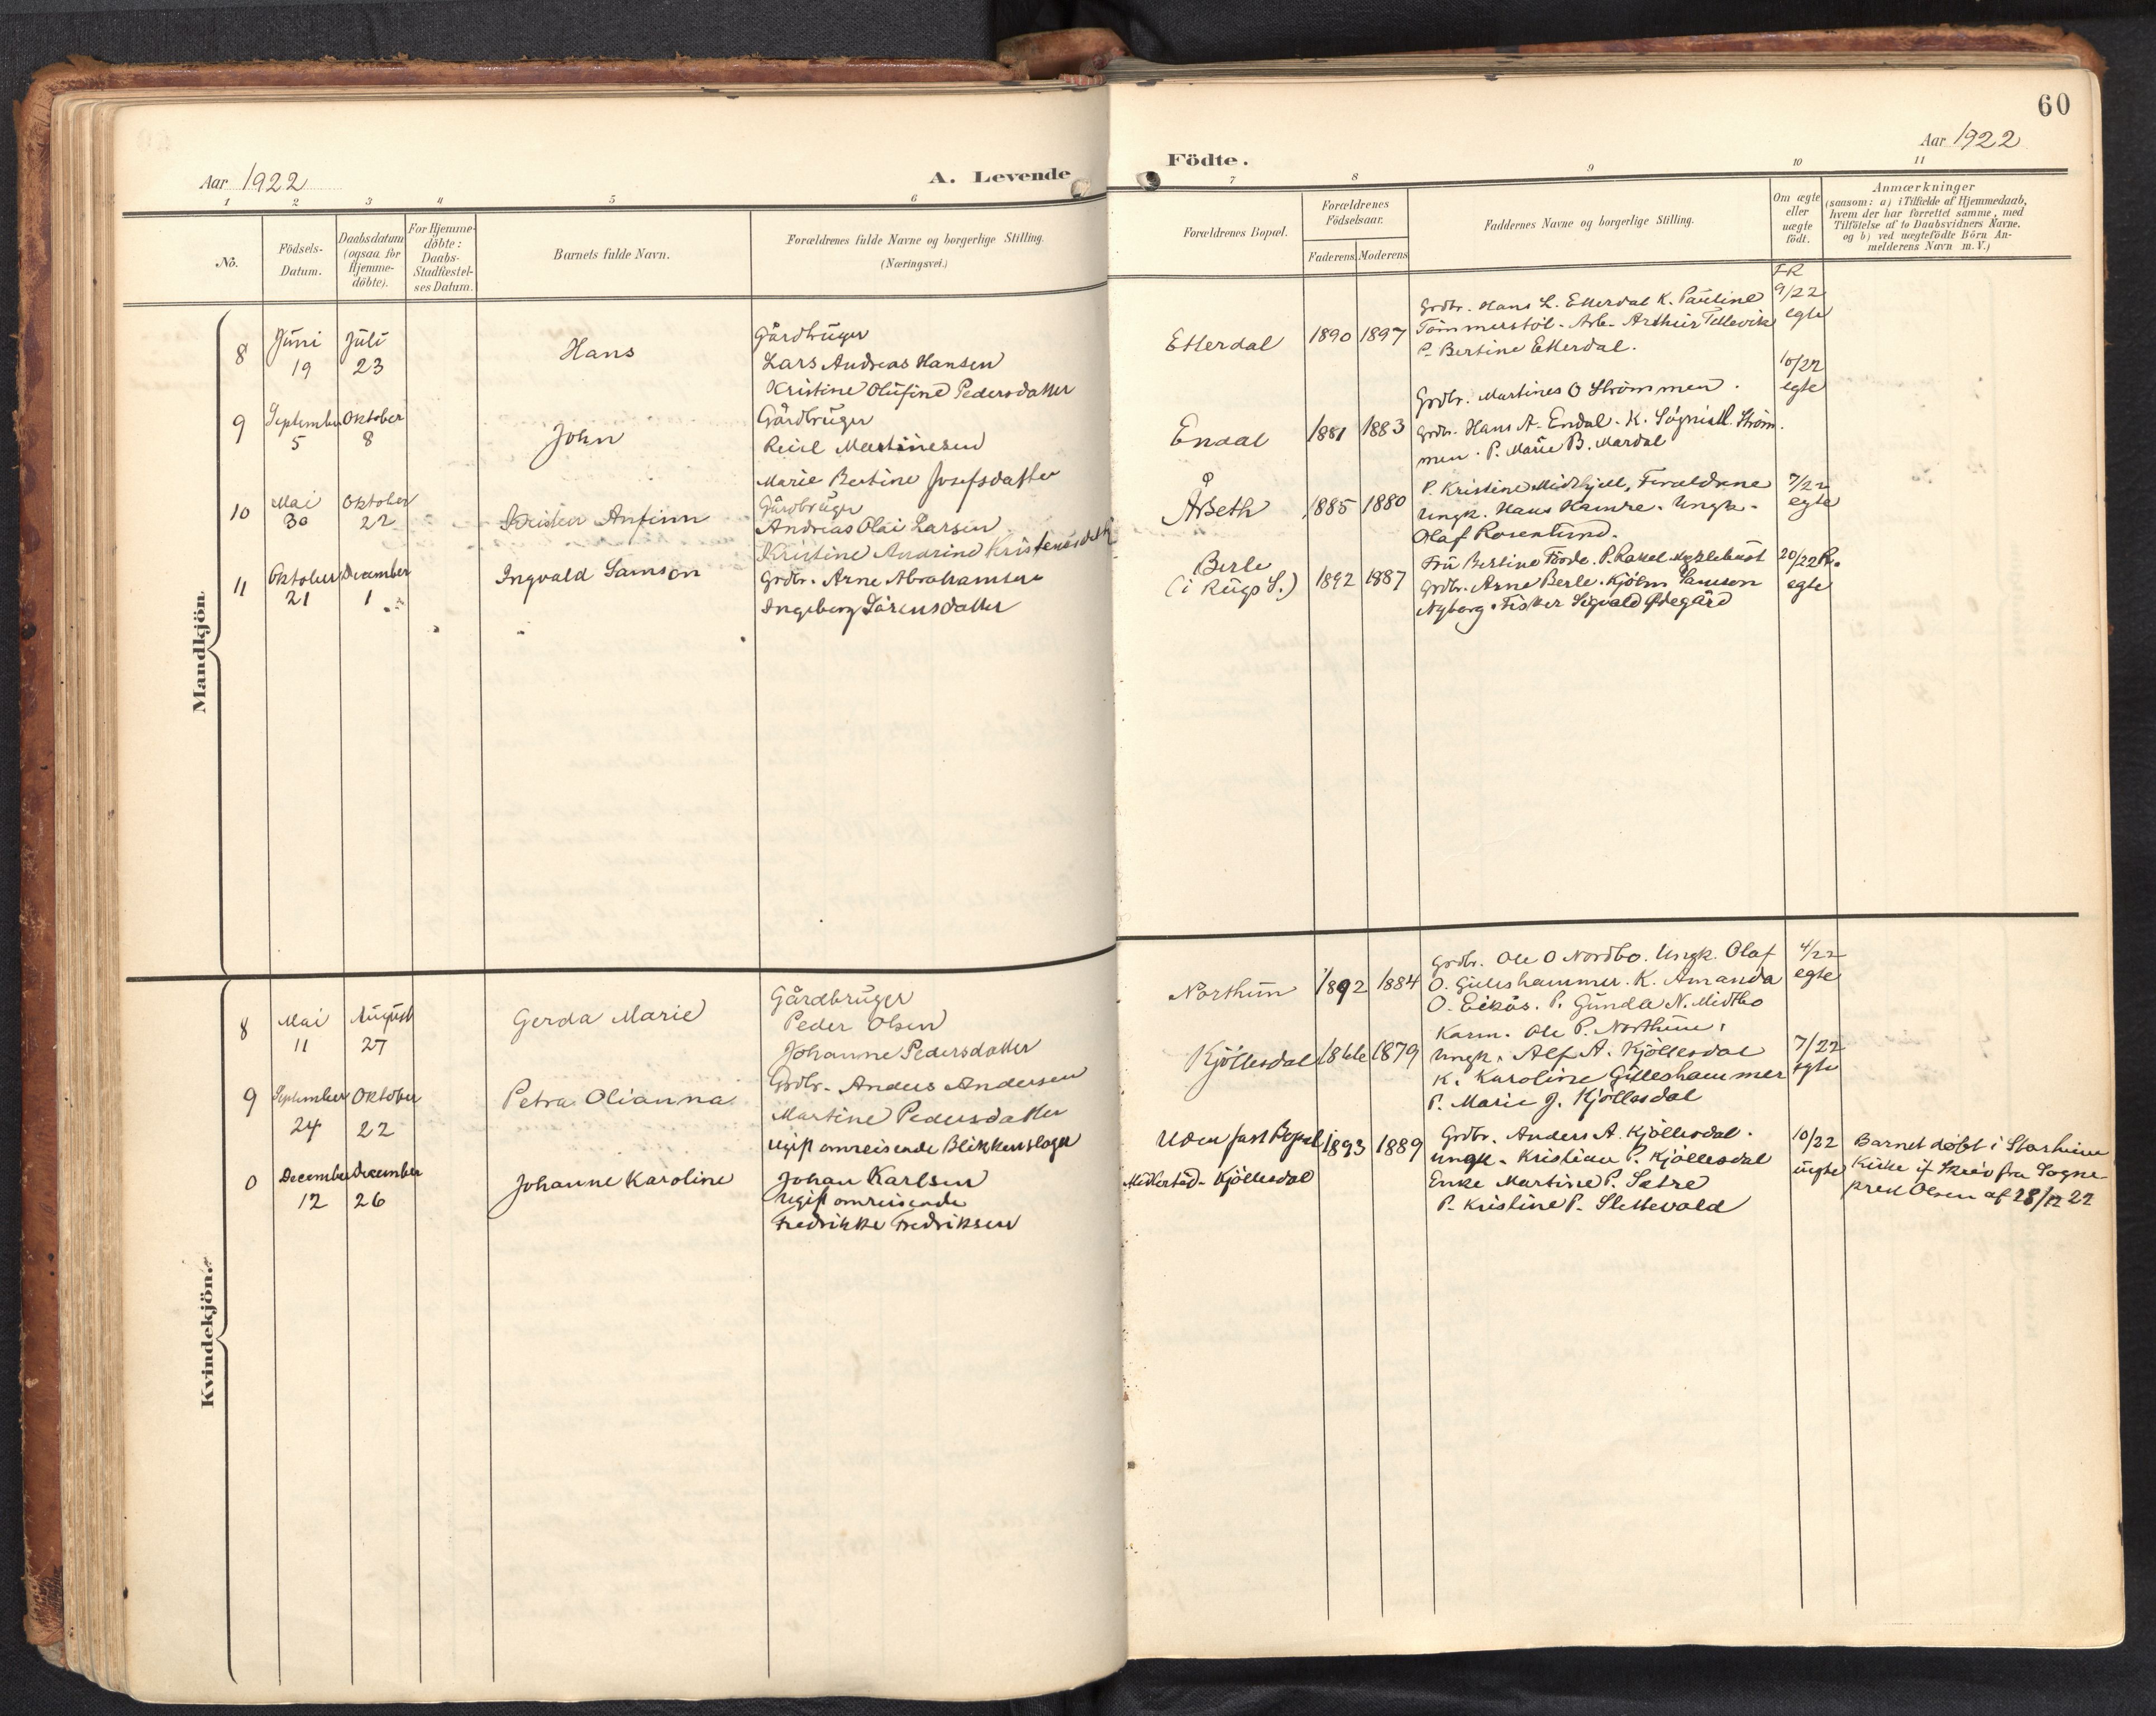 60
Aar 1922
A. Levende
Födte.
Aar 1922
1 2 3 4 5 6 7 8 9 10 11
No.
Födsels-
Datum.
Daabsdatum
(ogsaa for
Hjemme-
döbte).
For Hjemme-
döbte:
Daabs-
Stadfæstel-
ses Datum.
Barnets fulde Navn.
Forældrenes fulde Navne og borgerlige Stilling.
(Næringsvei.)
Forældrenes Bopæl.
Forældrenes
Födselsaar.
Faderens Moderens
Faddernes Navne og borgerlige Stilling.
Om ægte
eller
uægte
födt.
Anmærkninger
(saasom: a) i Tilfælde af Hjemmedaab,
hvem der har forrettet samme, med
Tilföielse af to Daabsvidners Navne.
og b) ved uægtefödte Börn An-
melderens Navn m. V.)
Mandkjön
8
Juni
19
Juli
23
Hans
Gårdbruger
Lars Andreas Hansen
Kristine Olufine Pedersdatter
Etterdal
1890 1897
Grdbr. Hans L. Etterdal K. Pauline
Tömmerstöl. Arb. Arthur Tellevik
P. Bertine Etterdal.
FR
9/22
egte
9
September
5
Oktober
8
John
Gårdbruger
Reiel Martinesen
Marie Bertine Josefsdatter
Endal
1881 1883
Grdbr. Martines O Strömmen.
Grdbr. Hans A. Endal. K. Ström
men. P. Marie B. Mardal
10/22
egte
10
Mai
30
Oktober
22
Kristen Anfinn
Gårdbruger
Andreas Olai Larsen
Kristine Andrine Kristensdatt
Årseth
1885 1880
P. Kristine Midthjell, Forældrene
Ungk. Hans Hamre. Ungk.
Olaf Rosenlund.
7/22
egte
11
Oktober
21
December
1
Ingvald Samson
Grdbr. Arne Abrahamsen
Ingeborg Sörensdatter
Berle
(i Rugs S.)
1892 1887
Fru Bertine Förde. P. Rakel Myklebust
Grdbr. Arne Berle. Kjöbm Samson
Nyborg. Fisker Sigvald Ødegård
20/22 R.
egte
Kvindekjön.
8
Mai
11
August
27
Gerda Marie
Gårdbruger
Peder Olsen
Johanne Pedersdatter
Northun
1892 1884
Grdbr. Ole O Nordbo. Ungk. Olaf
O. Gilleshammer. K. Amanda
O. Eikås. P. Gunda N. Midtbo
4/22
egte
9
September
24
Oktober
22
Petra Olianna
Grdbr. Anders Andersen
Martine Pedersdatter
Kjöllesdal
1879
Karm. Ole P. Northun,
Ungk. Alf A. Kjöllesdal
K. Karoline Gilleshammer
P. Marie J. Kjöllesdal
7/22
egte
0
December
12
December
26
Johanne Karoline
Ugift omreisende Blikkenslager
Johan Karlsen
Ugift omreisende
Fredrikke Fredriksen
Uden fast Bopæl
Midlertid. Kjöllesdal
1893 1889
Grdbr. Anders A. Kjöllesdal.
Ungk. Kristian P. Kjöllesdal
Enke Martine P. Sætre
P. Kristine P. Slettevold
10/22
uegte
Barnet döbt i Starheim
Kirke if Skriv fra Sogne
prest Olsen af 28/12 22